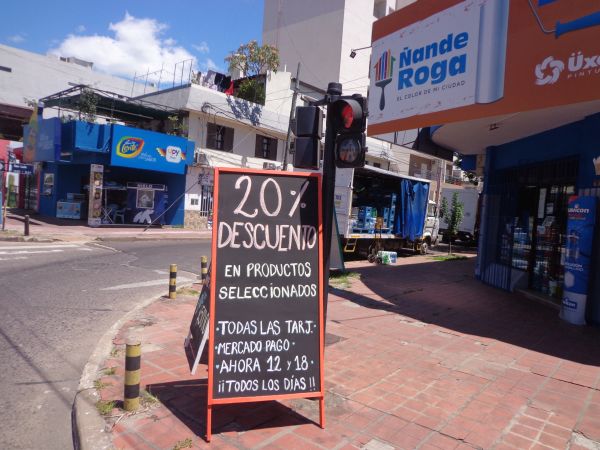 Ñande
Roga
EL COLOR DE MI CIUDAD
20%
DESCUENTO
EN PRODUCTOS
SELECCIONADOS
·TODAS LAS TARJ.
·MERCADO PAGO·
·AHORA 12 Y 18·
¡¡TODOS LOS DÍAS!!